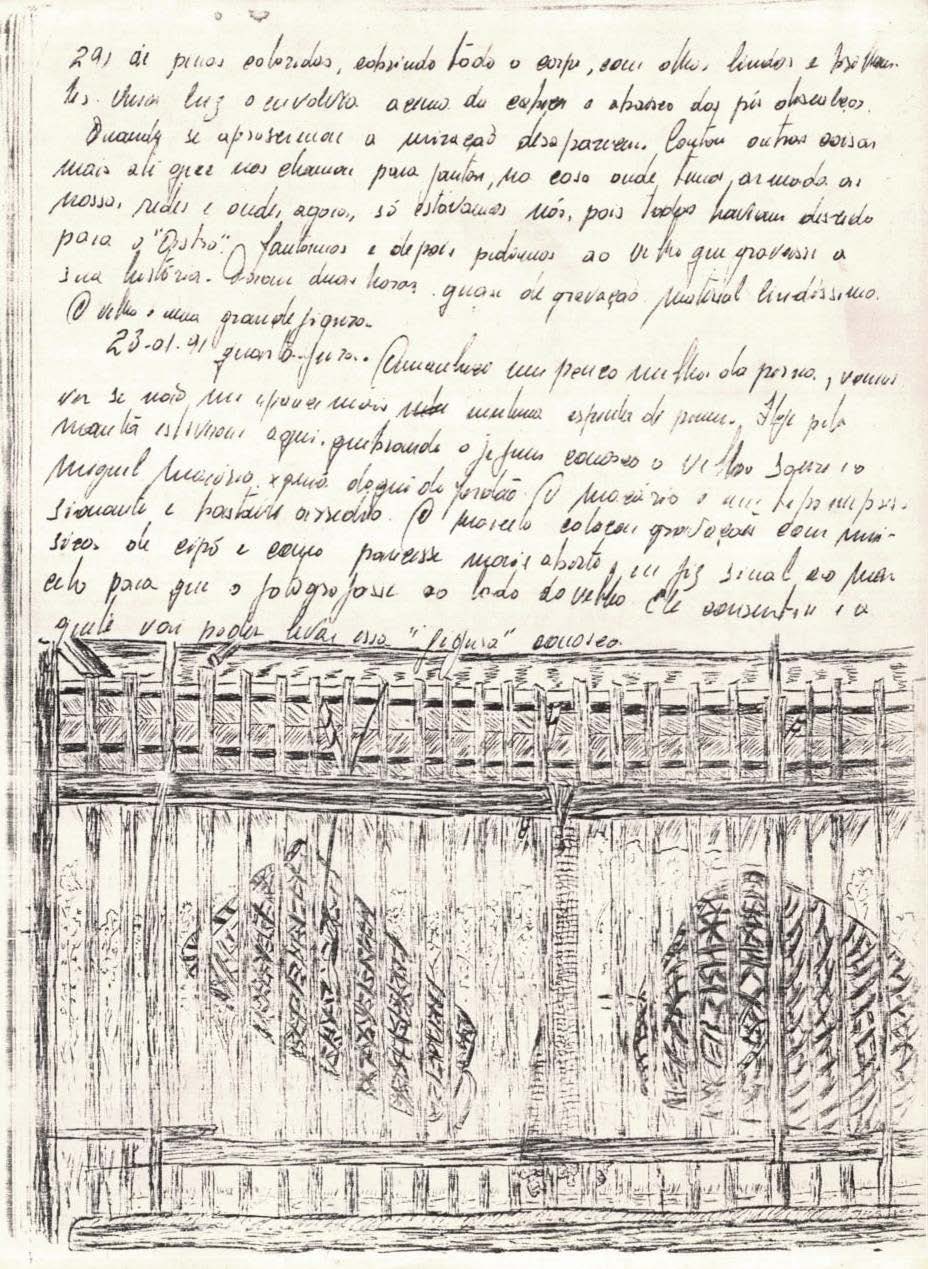 de penas coloridas, cobrindo todo o corpo, com olhos lindos e brilhan-
tes. Uma luz o envolvia acima da cabeça e abaixo dos pés descalços.
Quando se aproximou a miração desapareceu. Contou outras coisas
mais até que nos chamou para jantar, na casa onde tinha armado as
nossas redes e onde, agora, só estávamos nós, pois todos haviam descido
para o Jantamos e depois pedimos ao velho que gravasse a
sua história. Foram duas horas quase de gravação. Material lindíssimo.
O velho é uma grande figura.
23-01-91 quarta-feira. Amanheci um pouco melhor da perna, vamos
ver se não me aparece mais nenhuma Hoje pela
manhã estiveram aqui, quebrando o jejum conosco o velho e o
Miguel Macário, daqui do Jordão. O Macário é um tipo impres-
sionante e bastante arredio. O Marcelo colocou gravações com mú-
sicas de cipó e como parecesse mais aberto, eu fiz sinal ao Mar
celo para que o fotografasse ao lado do velho. Ele consentiu e a
gente vai poder levar essa "figura" conosco.